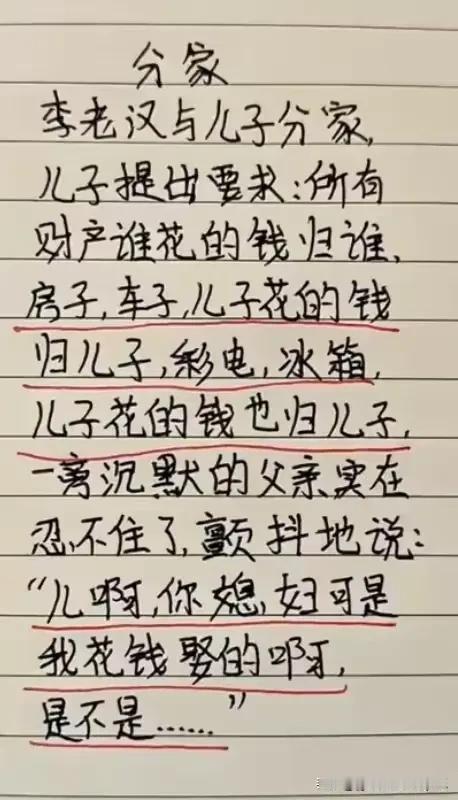 分家
李老汉与儿子分家,
儿子提出要求:所有
财产谁花的钱归谁,
房子,车子,儿子花的钱
归儿子,彩电,冰箱,
儿子花的钱也归儿子,
一旁沉默的父亲实在
忍不住了,颤抖地说:
“儿啊,你媳妇可是
我花钱娶的啊,
是不是……”